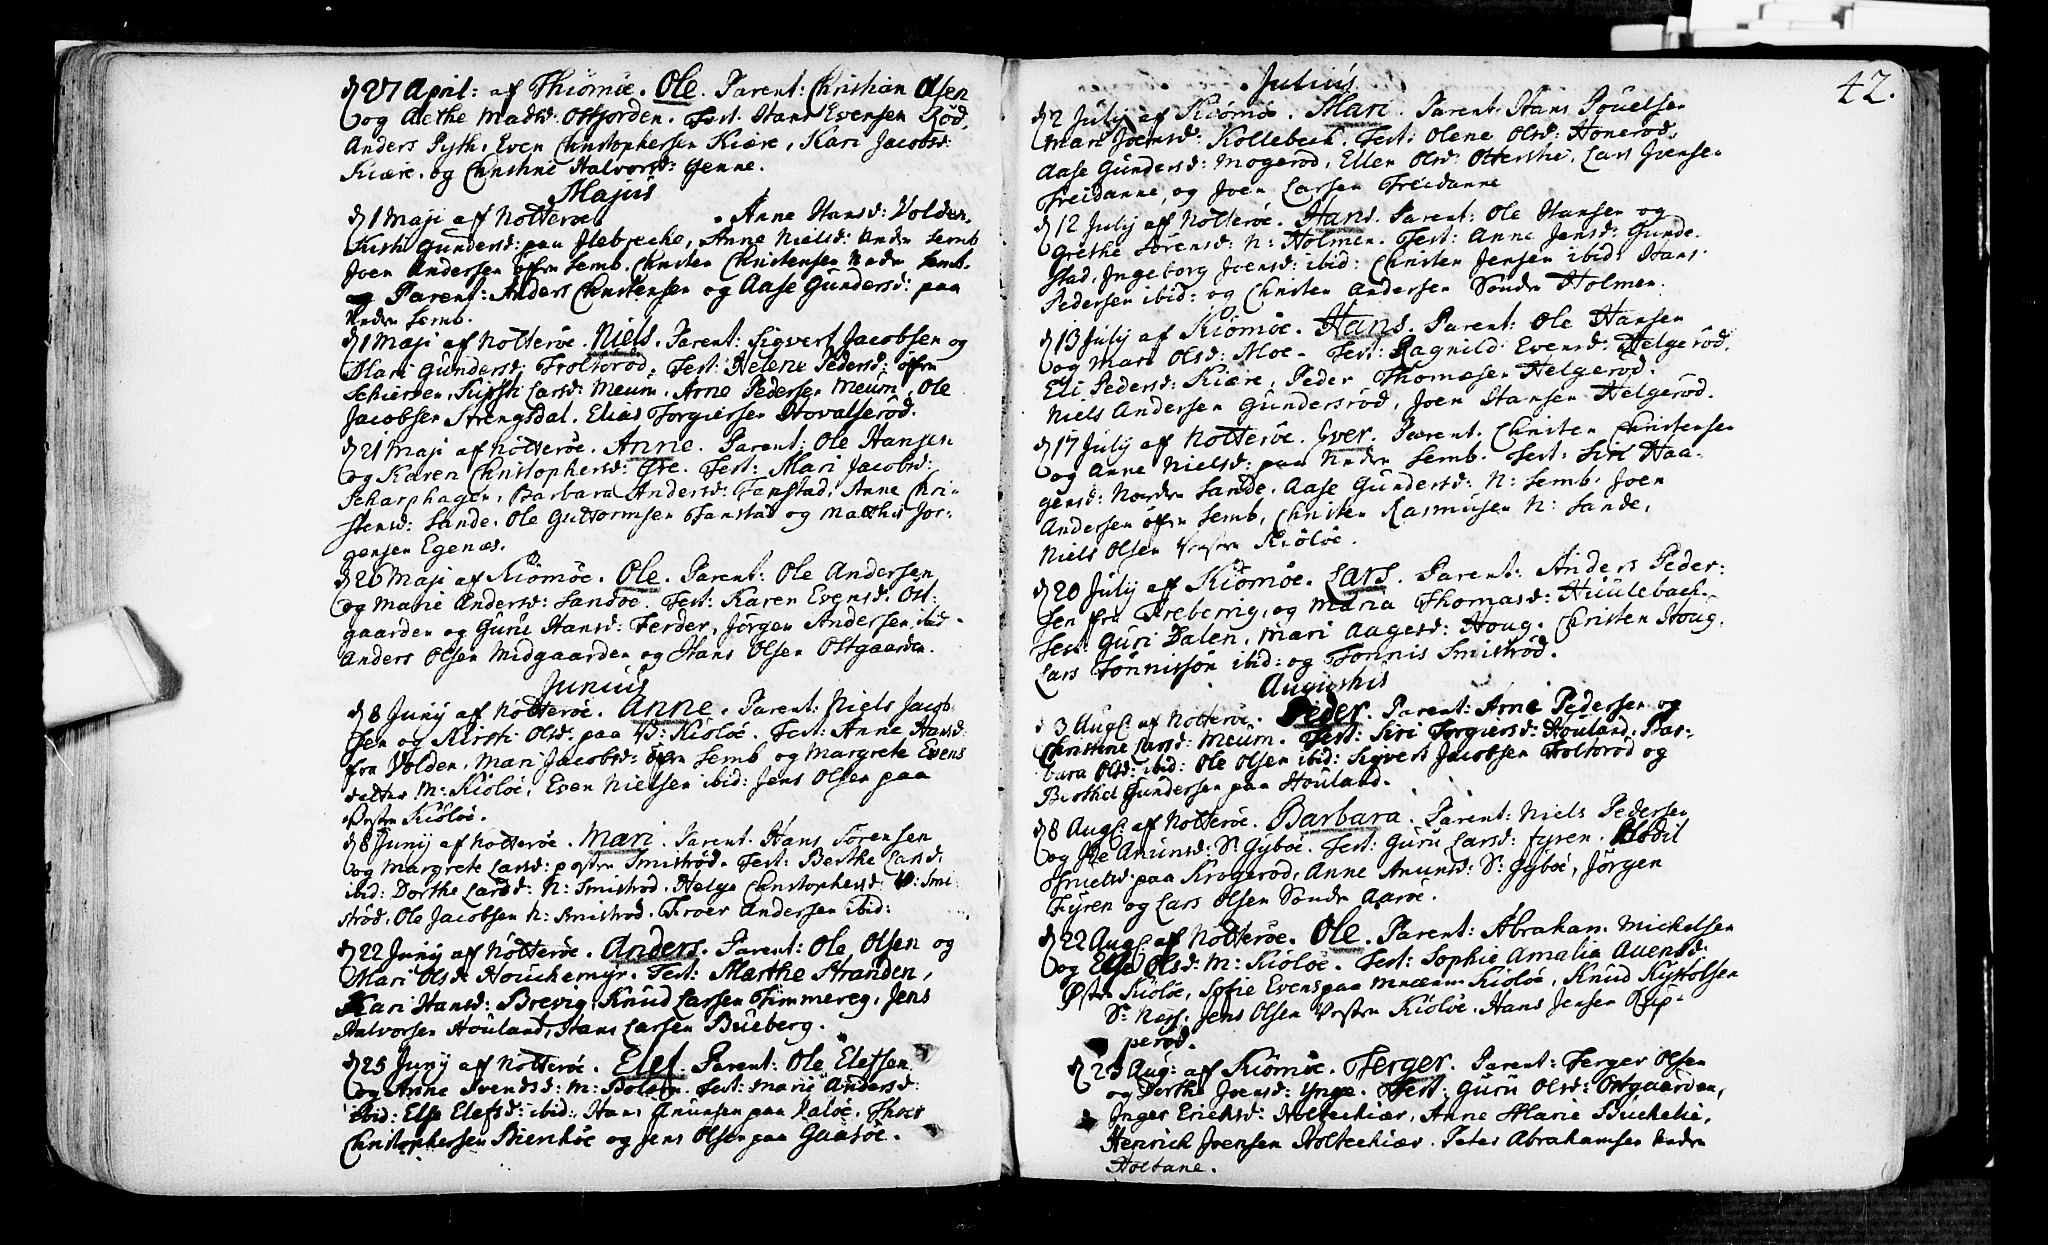 d 27 April: af Thiömöe. Ole. Parent: Christian Olsen
og Aethe Madsd: Ostjorden. Test. Hans Evensen Röd,
Anders Pyth, Even Christophersen Kiære, Kari Jacobsd:
Kiære. og Christine Halvorsd: Genne.
Majus
d 1 Maji af Notteröe . Anne Hansd: Volden,
Kirsti Gundersd: paa Ilebrecke, Anne Nielsd: Nedre Semb
Joen Andersen öfre Semb. Christen Christensen Nedre Semb.
og Parent: Anders Christensen og Aase Gundersd: paa
Nedre Semb.
d 1 Maji af Notteröe. Niels. Parent: Sigvert Jacobsen og
Mari Gundersd: Troltoröd, Test: Helene Pedersd: öfre
Schiersen, Kirsti Larsd: Meum. Arne Pedersen Meum, Ole
Jacobsen Strengsdal. Elias Torgiersen Hovalseröd.
d 21 Maji af Notteröe. Anne. Parent: Ole Hansen
og Karen Christophersd: Øre. Test: Mari Jacobsd:
Scharphagen, Barbara Andersd: Fanstad, Anne Chri-
stensd: Sande. Ole Guttormsen Fanstad og Matthis Jör-
gensen Egenæs.
d 26 Maji af Kiömöe. Ole. Parent: Ole Andersen
og Marie Andersd: Sandöe. Test: Karen Evensd: Ost:
gaarden og Guru Hansd: Ferder, Jörgen Andersen ibid-
Anders Olsen Midgaarden og Hans Olsen Ostgaarden.
Junius
d 8 Junij af Notteröe. Anne. Parent: Niels Jacob-
sen og Kirsti Olsd: paa V: Kiölöe. Test: Anne Hansd:
fra Volden, Mari Jacobsd: öfre Semb og Margrete Evens
datter M: Kiölöe, Even Nielsen ibid: Jens Olsen paa
Vestre Kiölöe.
d 8 Junij af Notteröe. Mari. Parent. Hans Sörensen
og Margrete Larsd: vestre Smiströd. Test: Berthe Larsd:
ibid: Dorthe Larsd: N: Smiströd. Helge Christophersd: V: Smi-
ströd, Ole Jacobsen N: Smiströd. Froer Andersen ibid:
d 22 Junij af Nötteröe. Anders. Parent: Ole Olsen og
Mari Olsd: Houchemyr. Test: Marthe Stranden,
Kari Hansd: Brevig, Knud Larsen Timmereg, Jens
Halvorsen Houland, Hans Larsen Bueberg.
d 25 Junij af Notteröe. Elef. Parent: Ole Elefsen
og Anne Svendsd: M: Bolæren. Test: Marie Andersd:
ibid: Else Elefsd: ibid: Hans Anunsen paa Valöe. Thoer
Christophersen Bienköe og Jens Olsen paa Gaasöe.
42.
Julius
d 2 Julij af Kiömöe. Mari. Parent. Hans Povelsen
Mari Joensd: Kollebech. Test: Olene Olsd: Honeröd,
Aase Gundersd: Mogeröd, Ellen Olsd: Otterstie. Lars Iversen
Treidanne, og Joen Larsen Treidanne
d 12 Julij af Notteröe. Hans. Parent: Ole Hansen og
Grethe Sörensd: N: Holmen. Test: Anne Jensd: Gunde-
stad, Ingeborg Joensd: ibid: Christen Jensen ibid: Hans
Pedersen ibid: og Christen Andersen Söndre Holmen.
d 13 Julij af Kiömöe. Hans. Parent: Ole Hansen
og Mari Olsd: Moe. Test: Ragnild Evensd: Helgeröd,
Eli Pedersd: Kiære, Peder Thomæsen Helgeröd.
Niels Andersen Gundersröd, Joen Hansen Helgeröd.
d 17 Julij af Notteröe. Iver. Parent. Christen Christensen
og Anne Nielsd: paa Nedre Semb. Test: Siri Haa-
gensd: Nordre Sande, Aase Gundersd: N: Semb. Joen
Andersen öfre Semb, Christen Rasmusen N: Sande,
Niels Olsen Vestre Kiölöe.
d 20 Julij af Kiömöe. Lars. Parent: Anders Peder:
sen fra Treberrig, og Maria Thomasd: Huulebach.
Test: Guri Dalen, Mari Aagesd: Houg. Christen Houg.
Lars Tönnissön ibid: og Tönnis Smiströd.
Augustus
d 3 Aug: af Notteröe. Peder. Parent: Arne Pedersen og
Christine Larsd: Meum. Test: Siri Torgiersd: Houland, Bar-
bara Olsd: ibid: Ole Olsen ibid: Sigvert Jacobsen Troltoröd og
Berthel Gundersen paa Houland.
d 8 Aug: af Notteröe. Barbara. Parent: Niels Pedersen
og Ide Anunsd: S: Gyböe. Test: Guru Larsd: Fyren. Bodil
Truelsd: paa Krogeröd, Anne Anunsd: S: Gyböe, Jörgen
Fyren og Lars Olsen Söndre Aaröe.
d 22 Aug: af Notteröe. Ole. Parent: Abraham Mickelsen
og Else Olsd: M: Kiölöe. Test: Sophie Amalia Auensd:
Østre Kiölöe, Sofie Evens paa Kiölöe, Knud Kystolsen
S: Næss. Jens Olsen Vestre Kiölöe. Hans Jensen Rup-
peröd.
d 23 Aug: af Kiömöe. Ferger. Parent: Ferger Olsen
og Dorthe Joensd: Ynge. Test: Guru Olsd: Ostgaarden,
Inger Erichsd: Holtechiær, Anne Marie Buchelie,
Henrich Joensen Holtechiær. Peter Abrahamsen Nedre
Holtane.